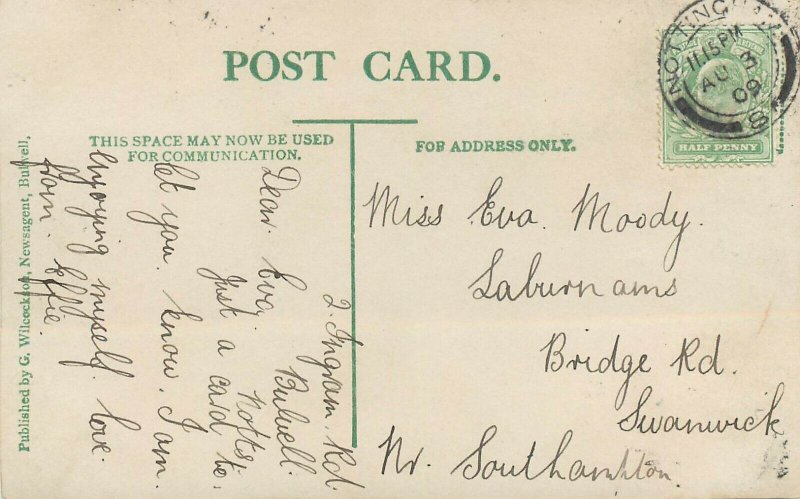 POST CARD.
THIS SPACE MAY NOW BE USED
FOR COMMUNICATION.
FOR ADDRESS ONLY.
NOTTINGHAM
11.15 PM
AU 3
09
HALF PENNY
2. Ingram. Rd.
Bulwell.
Notts.
Dear. Eva.
Just a card to.
let you. know. I am.
enjoying myself. love.
from. Effie.
Miss. Eva. Moody.
Laburnams
Bridge Rd.
Swanwick
Nr. Southampton.
Published by G. Wilcockson, Newsagent, Bulwell,